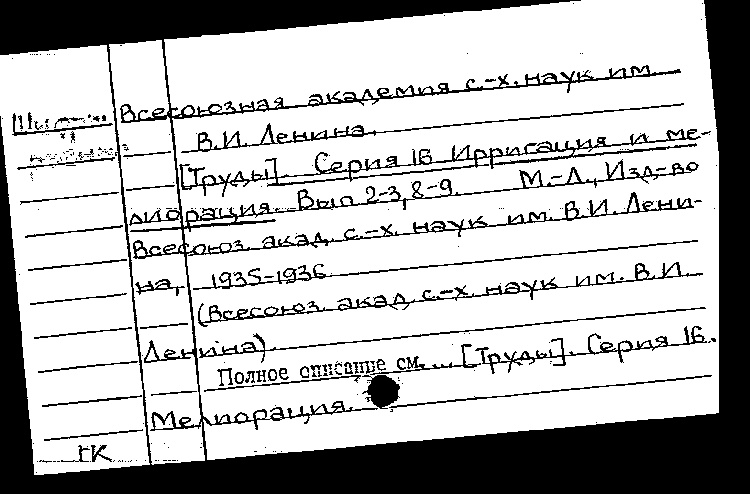 Всесоюзная академия с.-х. наук им.
В.И. Ленина.
[Труды]. Серия 16 Ирригация и ме-
лиорация. Вып 2-3, 8-9. М.-Л., Изд-во
Всесоюз. акад. с.-х. наук им. В.И. Лени-
на, 1935-1936
(Всесоюз. акад. с.-х. наук им. В.И.
Ленина).
Полное описание см. ... [Труды]. Серия 16.
Мелиорация.
ГК